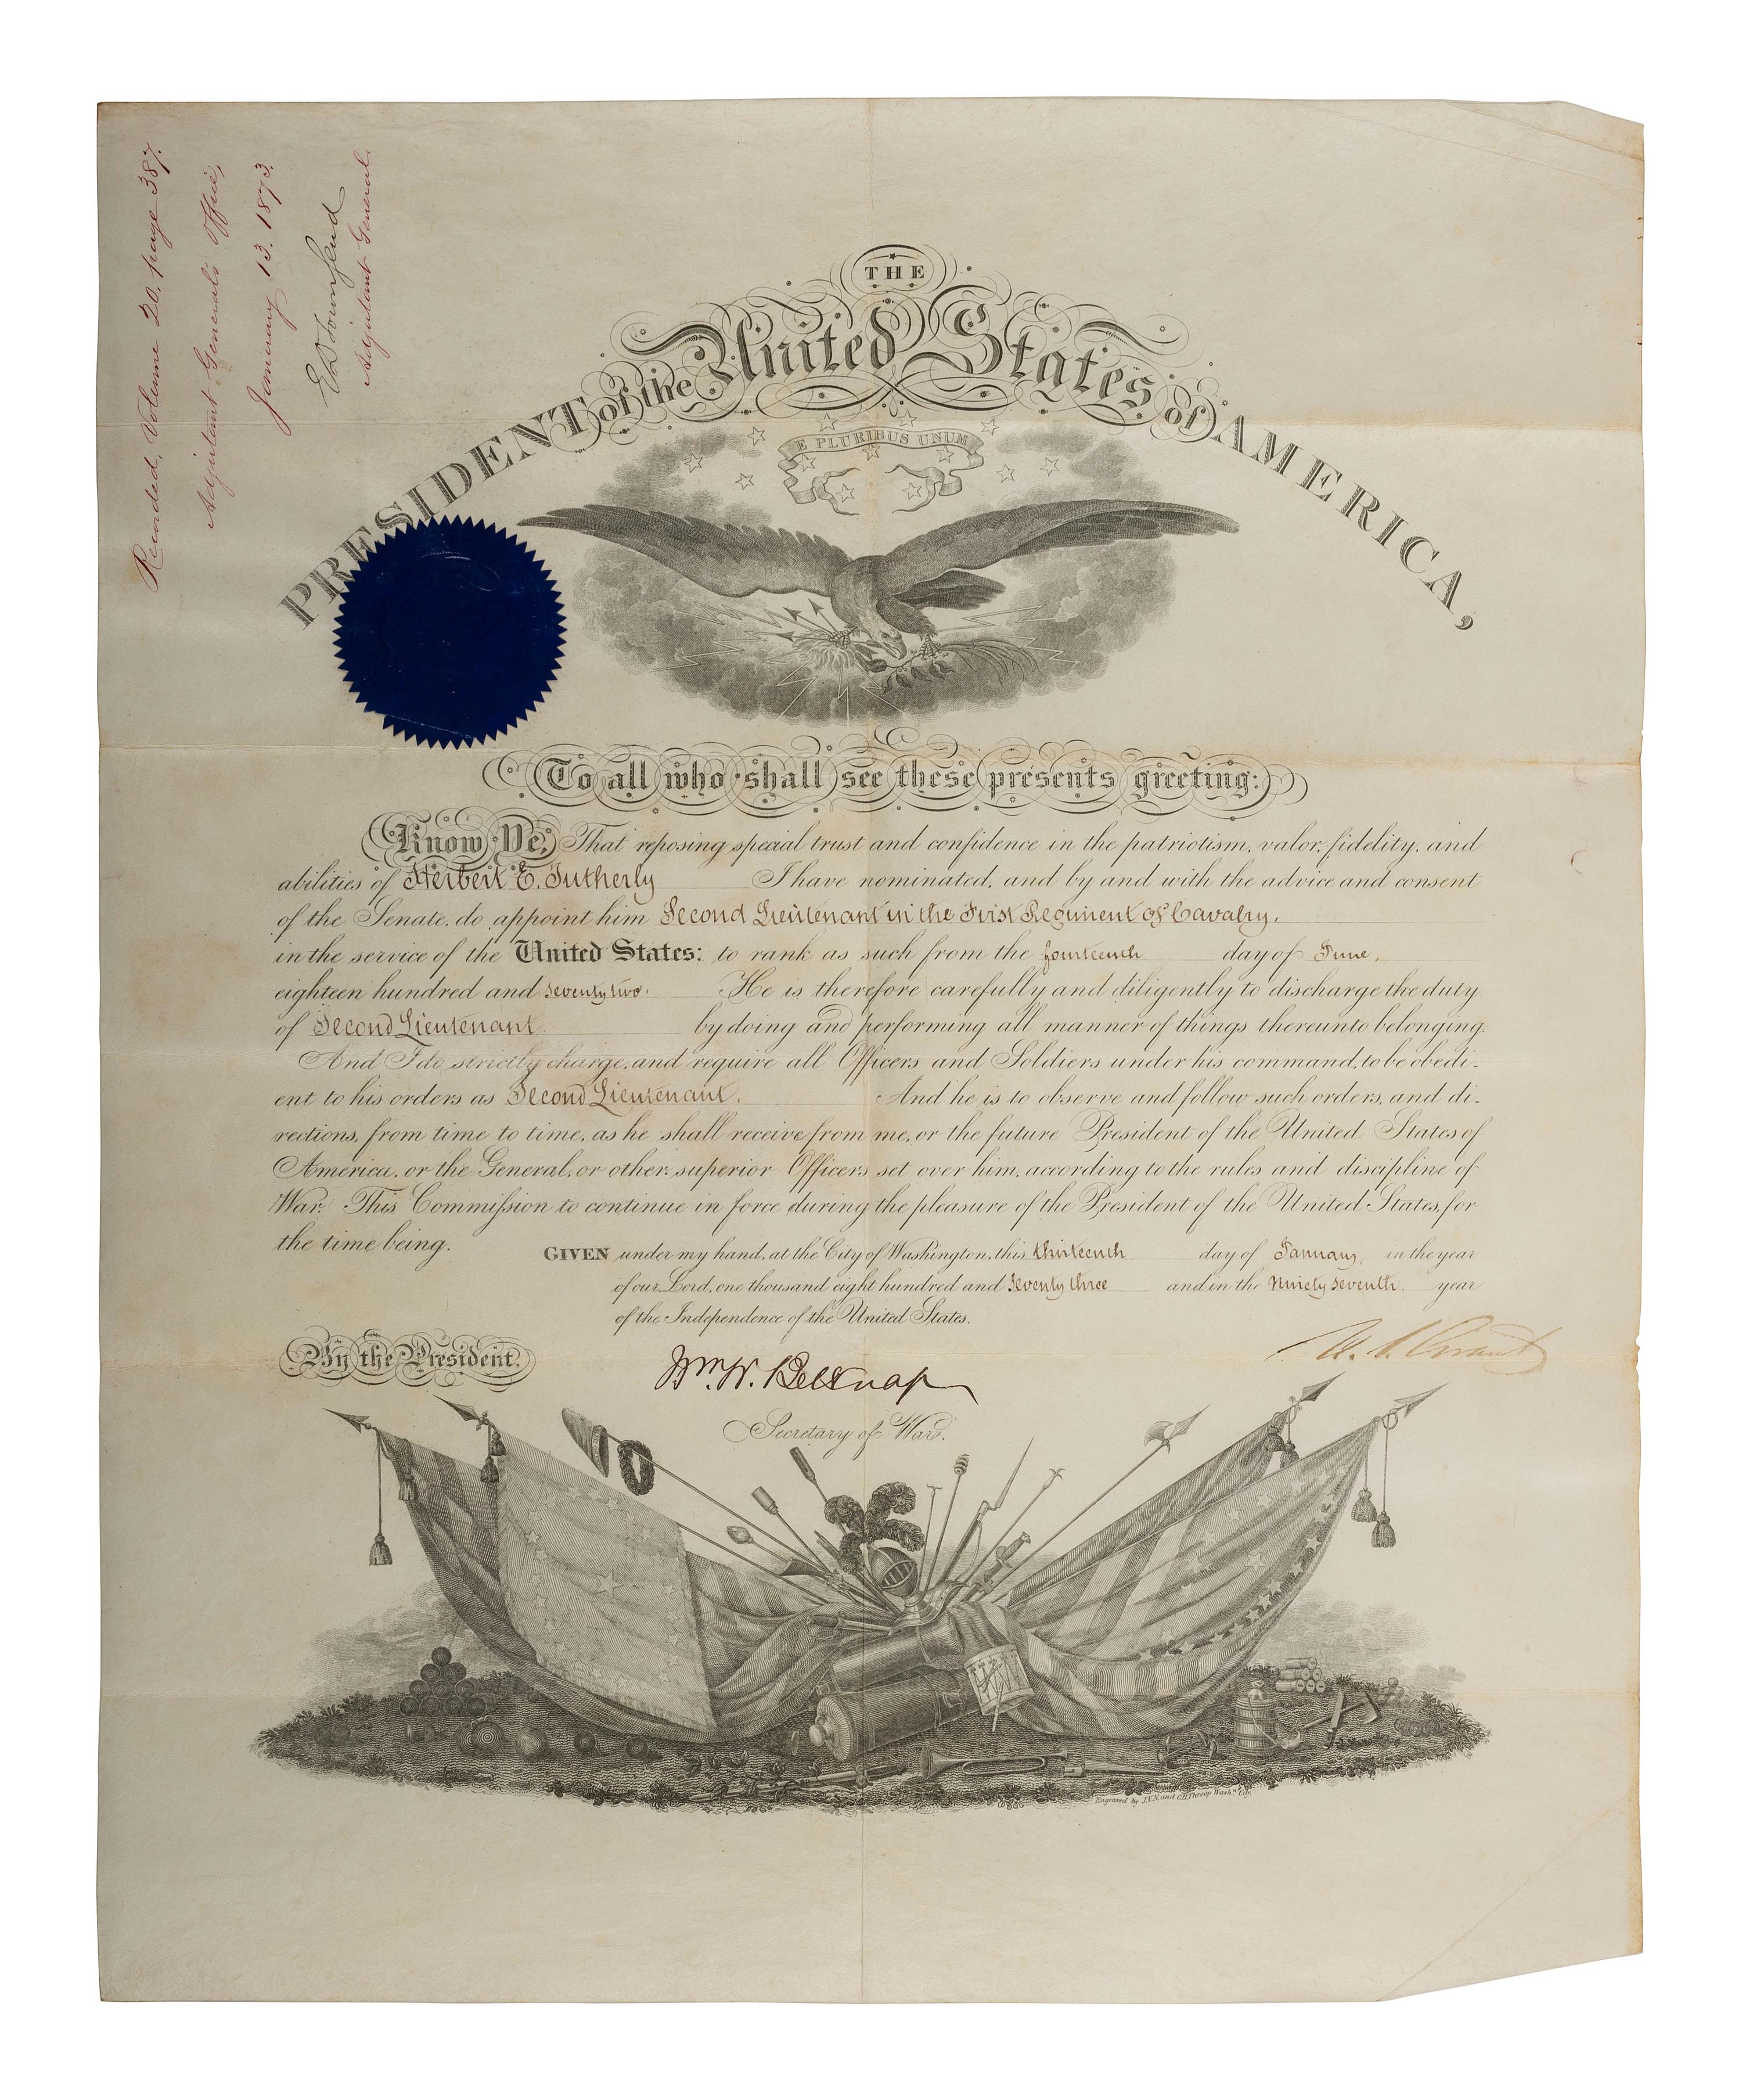 Recorded, Volume 20, page 387.
Adjutant General's Office,
January 13. 1873.
E D Townsend
Adjutant General.
THE
PRESIDENT of the United States of AMERICA,
E PLURIBUS UNUM
To all who shall see these presents greeting:
Know Ye, That reposing special trust and confidence in the patriotism, valor, fidelity, and
abilities of Herbert E. Tutherly I have nominated, and by and with the advice and consent
of the Senate, do appoint him Second Lieutenant in the First Regiment of Cavalry,
in the service of the United States: to rank as such from the fourteenth day of June,
eighteen hundred and seventy two. He is therefore carefully and diligently to discharge the duty
of Second Lieutenant by doing and performing all manner of things thereunto belonging.
And I do strictly charge, and require all Officers and Soldiers under his command, to be obedi-
ent to his orders as Second Lieutenant. And he is to observe and follow such orders, and di-
rections, from time to time, as he shall receive from me, or the future President of the United States of
America, or the General, or other superior Officers set over him, according to the rules and discipline of
War. This Commission to continue in force during the pleasure of the President of the United States, for
the time being.
GIVEN under my hand, at the City of Washington, this thirteenth day of January, in the year
of our Lord, one thousand eight hundred and seventy three and in the Ninety seventh. year
of the Independence of the United States.
U. S. Grant
By the President.
Wm. W. Belknap
Secretary of War.
Engraved by J.V.N. and O.H. Throop Washn. City.